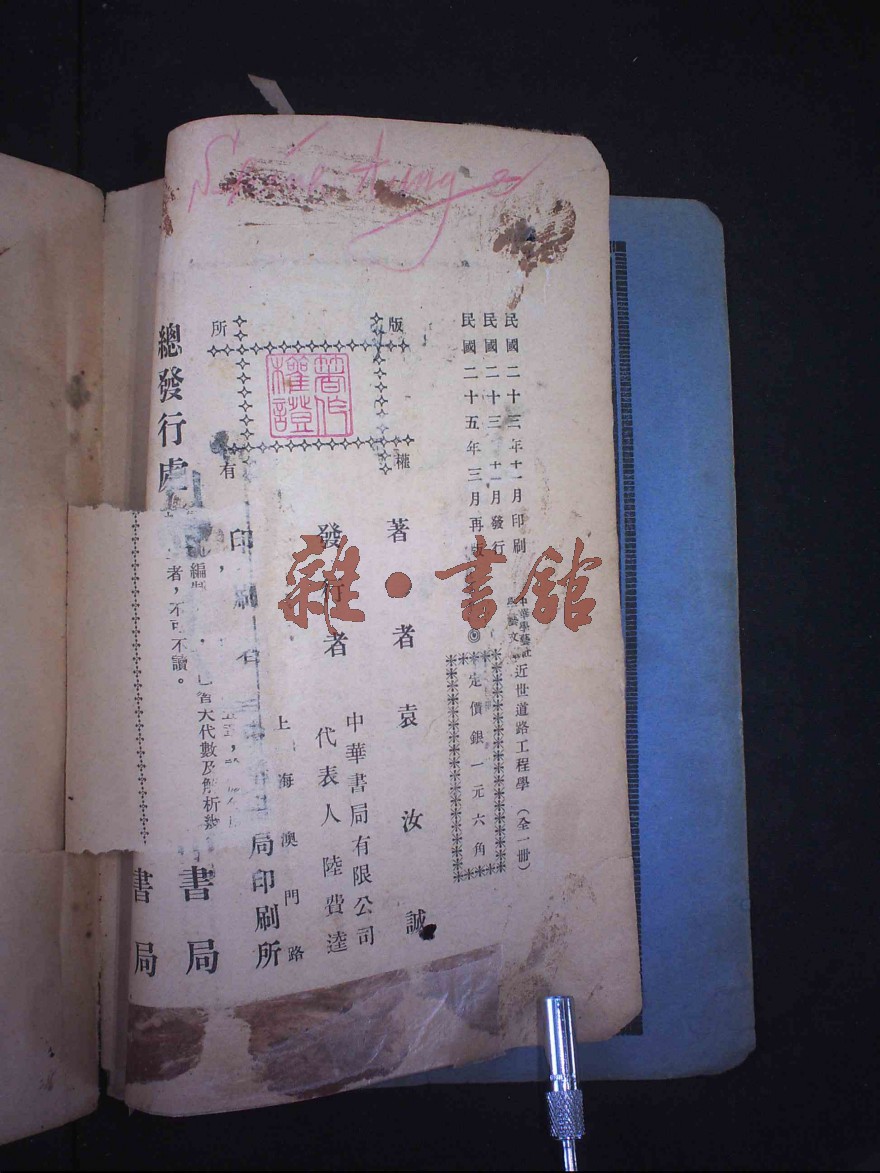 民國二十三年十一月印刷
民國二十三 十一月發行
民國二十五年三月再版
中華學藝社
近世道路工程學(全一册)
◎定價銀一元六角
版權所有
著作權證
著者 袁汝誠
發行者 中華書局有限公司
代表人 陸費逵
上海澳門路
印刷者
局印刷所
總發行處
書局
書局
編
者,不可不讀。
大代數及解析
雜·書館